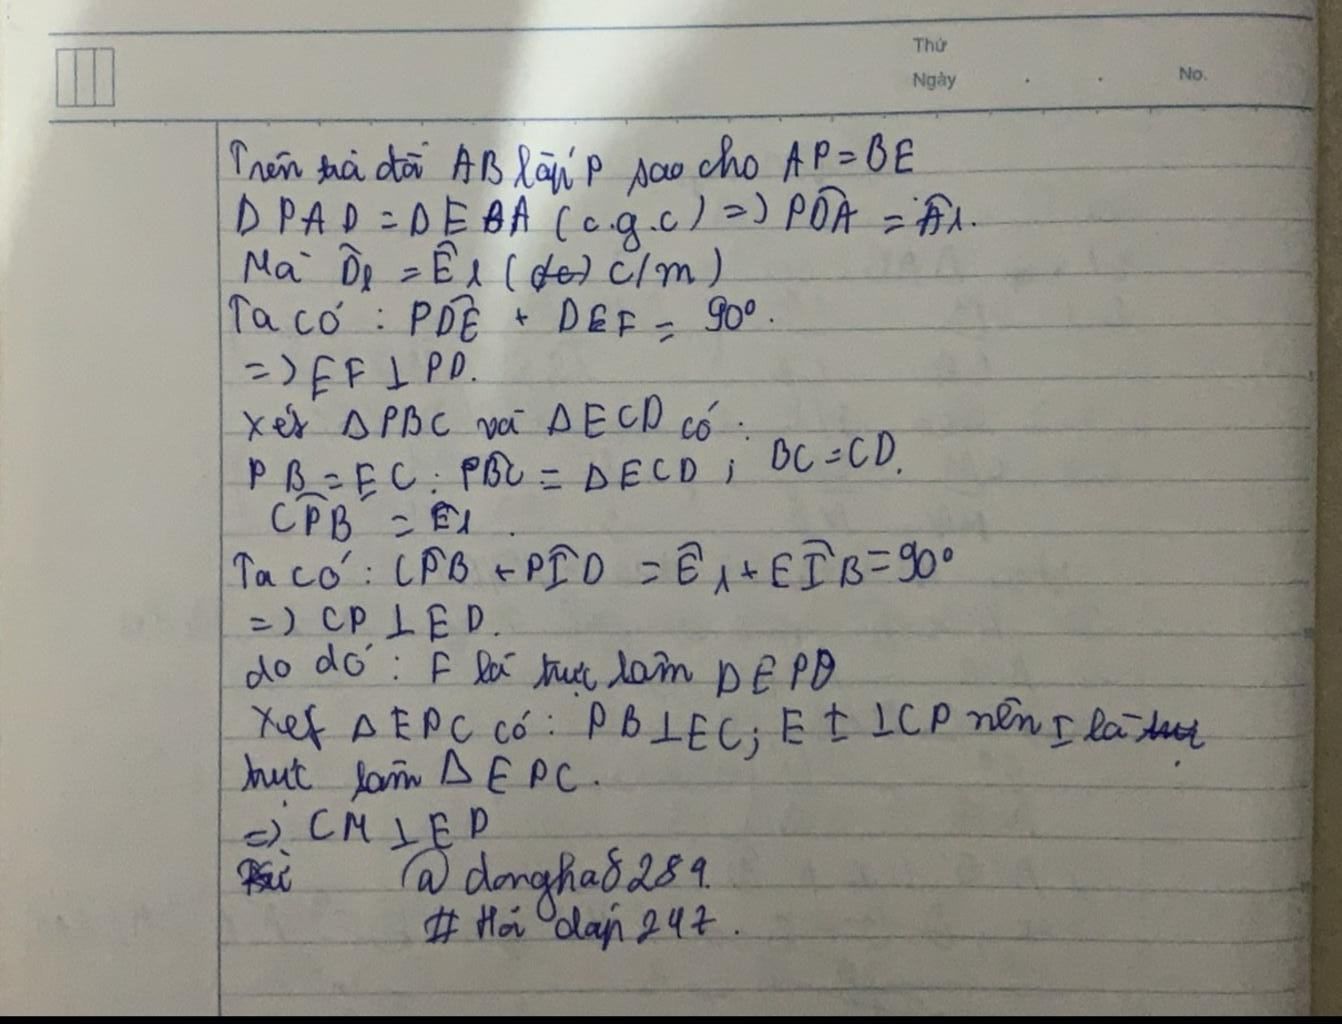 Thứ
Ngày . . No.
Trên tia đối AB lấy P sao cho AP = BE
D PAD = D EBA (c.g.c) => PDA = A1.
Mà D1 = E1 (c/m)
Ta có : PDE + DEF = 90°.
=> EF ⊥ PD.
Xét Δ PBC và Δ ECD có :
PB = EC ; PBC = Δ ECD ; BC = CD.
CPB = E1.
Ta có : CPB + PID = E1 + EIB = 90°
=> CP ⊥ ED.
do đó : F là trực tâm D EPD
Xét Δ EPC có : PB ⊥ EC ; E I ⊥ CP nên I là
trực tâm Δ EPC.
=> CM ⊥ EP
@ dongha8289.
# Hỏi đáp 247.